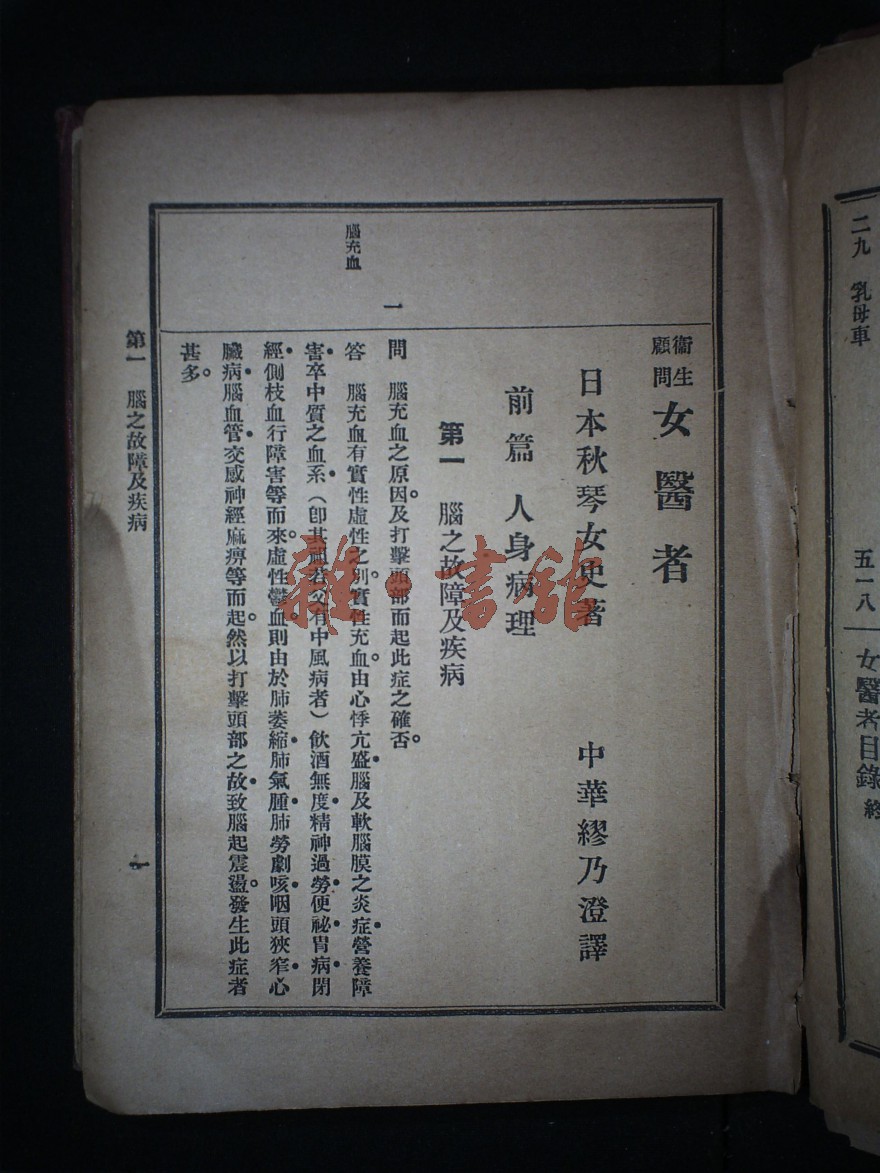 二九 乳母車 五一八
女醫者目錄終
衞生顧問 女醫者
日本秋琴女史著 中華繆乃澄譯
前篇 人身病理
第一 腦之故障及疾病
一
問 腦充血之原因。及打擊頭部而起此症之確否。
腦充血
答 腦充血有實性虛性之別。實性充血。由心悸亢盛•腦及軟腦膜之炎症•營養障
害•卒中質之血系•(卽其祖若父有中風病者)飮酒無度•精神過勞•便祕•胃病•閉
經•側枝血行障害等而來。虛性鬱血。則由於肺萎縮•肺氣腫•肺勞•劇咳•咽頭狹窄•心
臟病•腦血管•交感神經麻痹等而起。然以打擊頭部之故•致腦起震盪。發生此症者
甚多。
第一 腦之故障及疾病 一
雜·書舘